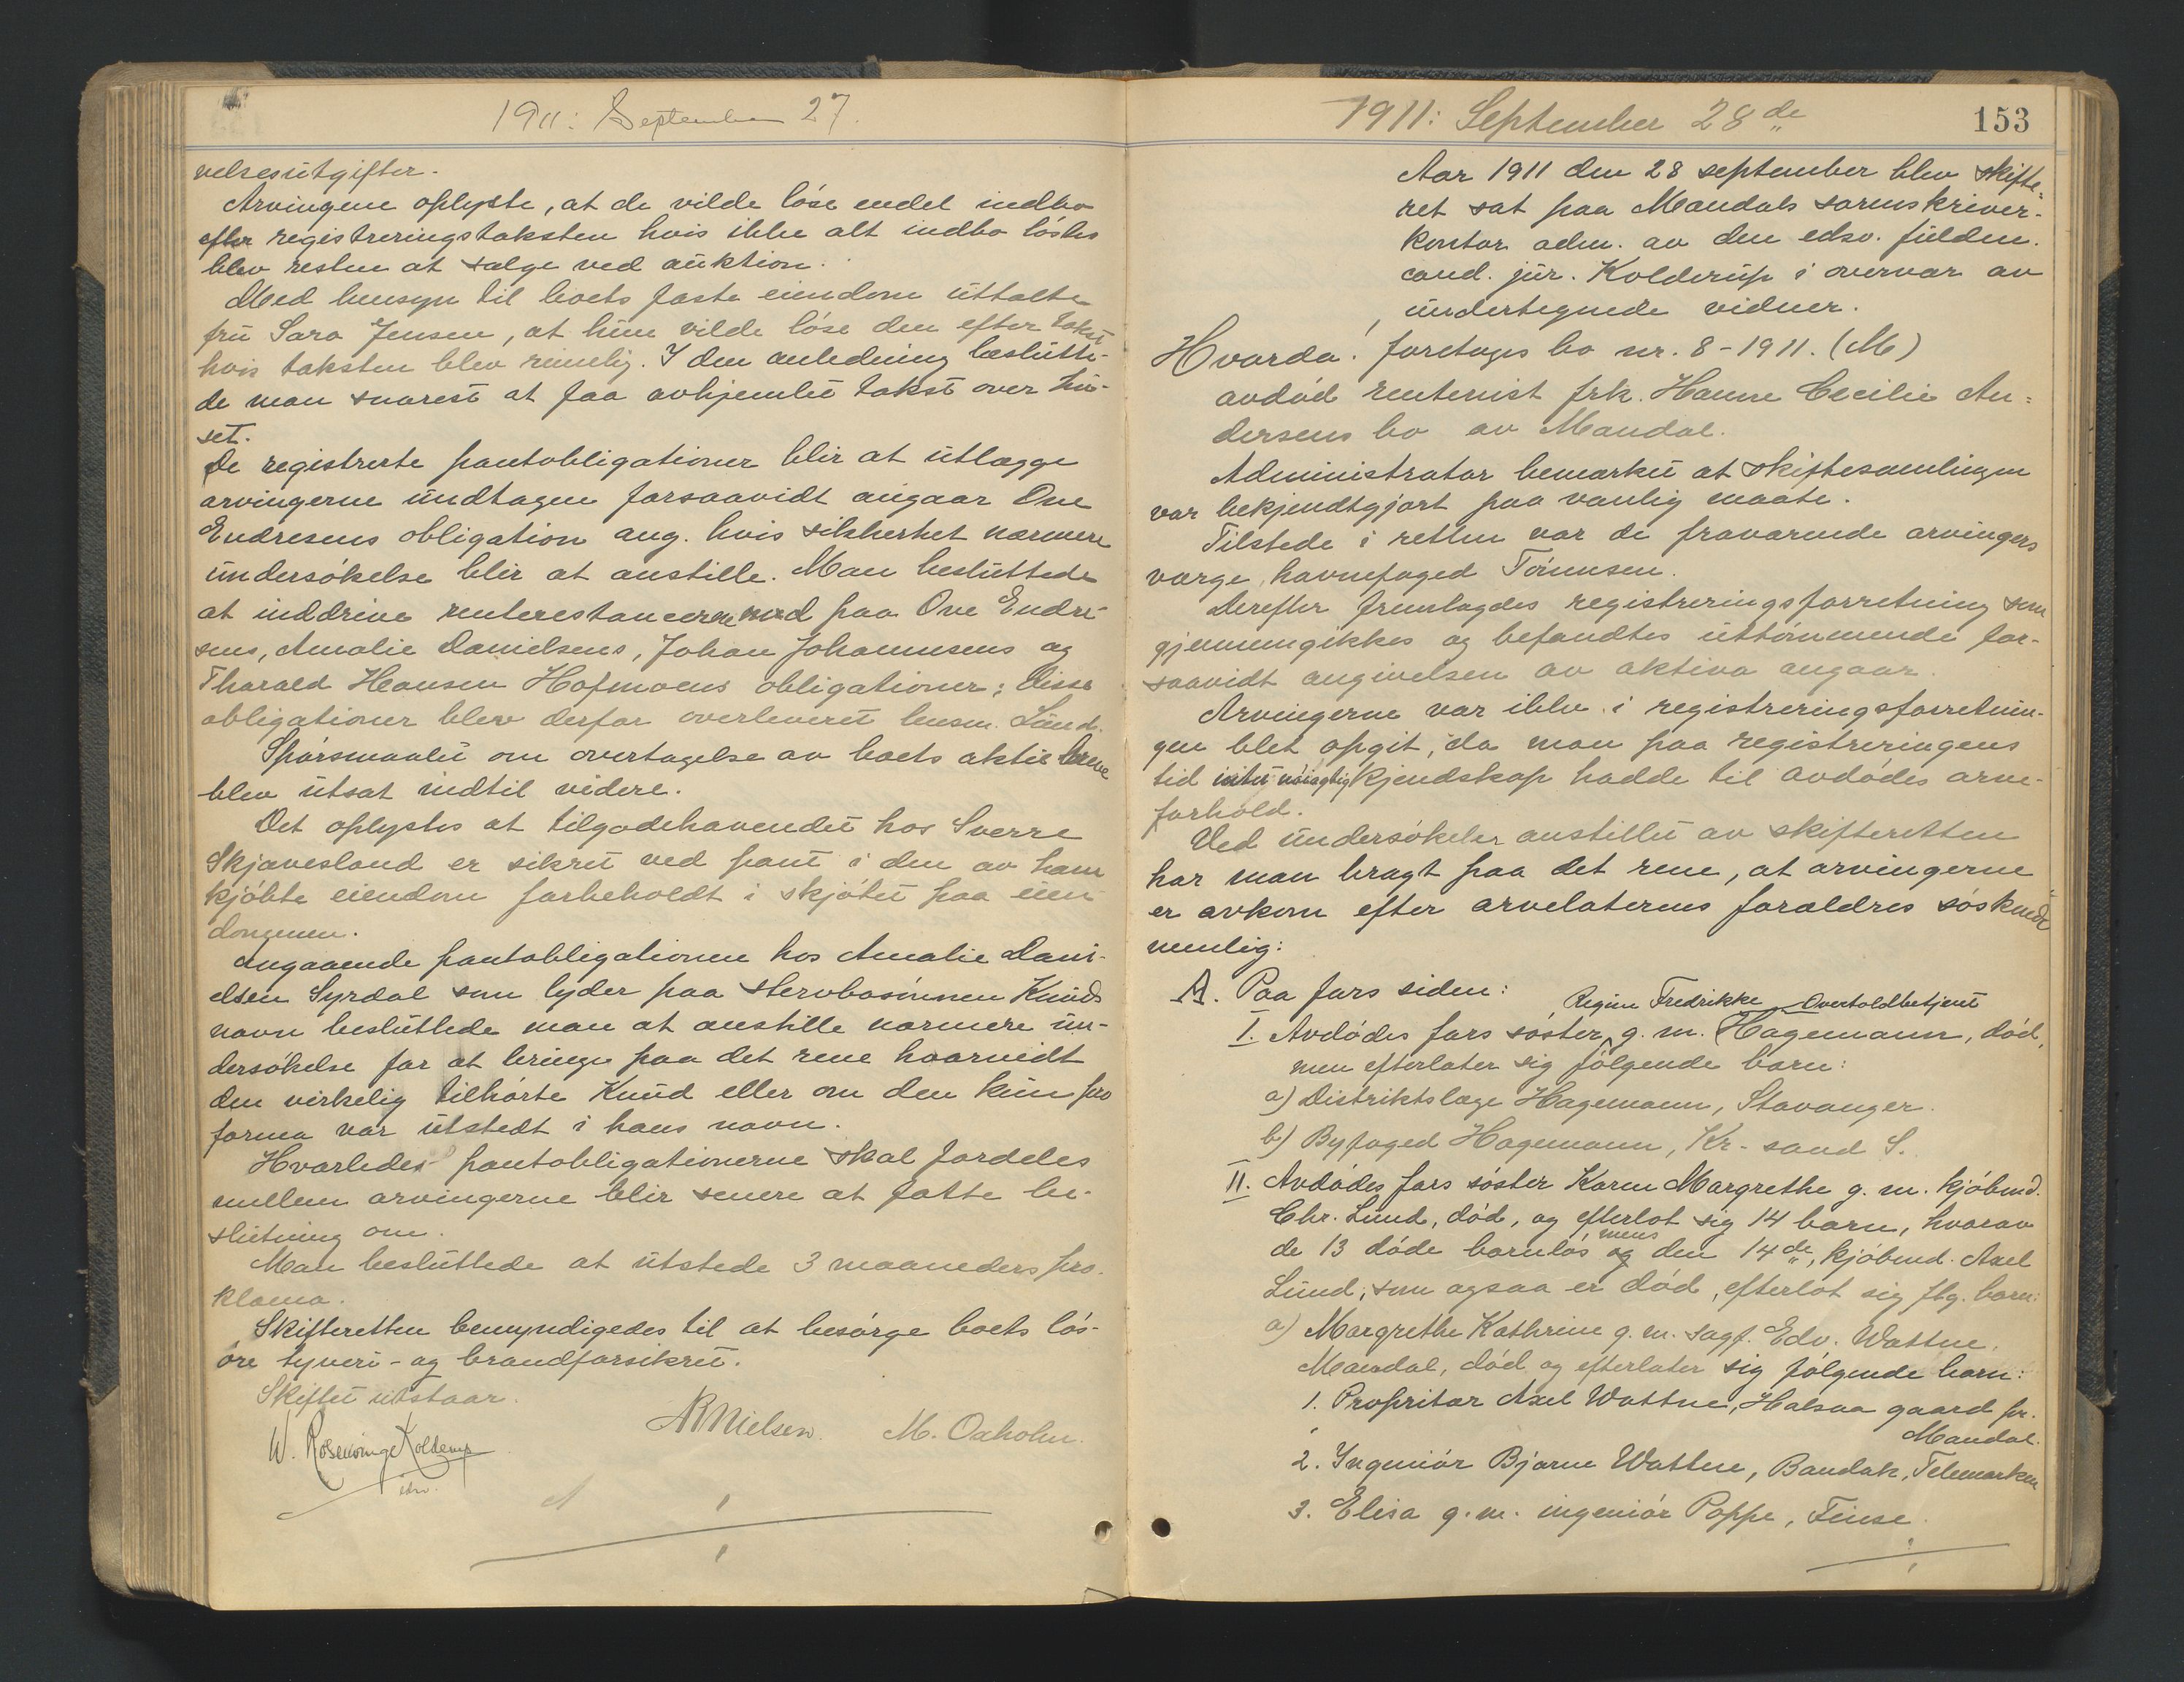 1911: September 27.
velsesutgifter.
Arvingene oplyste, at de vilde løse endel indbo
efter registreringstaksten hvis ikke alt indbo løstes
blev resten at sælge ved auktion.
Med hensyn til boets faste eiendom uttalte
fru Sara Jensen, at hun vilde løse den efter takst
hvis taksten blev rimelig. I den anledning beslutte-
de man snarest at faa avhjemlet takst over hu-
set.
De registrerte pantobligationer blir at utlægge
arvingerne undtagen forsaavidt angaar Ove
Endresens obligation ang. hvis sikkerhet nærmere
undersøkelse blir at anstille. Man besluttede
at inddrive renterestancerne med paa Ove Endre-
sens, Amalie Danielsens, Johan Johannesens og
Tharald Hansen Hofmoens obligationer; disse
obligationer blev derfor overleveret lensm. Lund.
Spørsmaalet om overtagelse av boets aktie brev
blev utsat indtil videre.
Det oplystes at tilgodehavendet hos Sverre
Skjævesland er sikret ved pant i den av ham
kjøbte eiendom forbeholdt i skjøtet paa eien-
dommen.
Angaaende pantobligationen hos Amalie Dani-
elsen Syrdal som lyder paa stervbosønnen Knuds
navn besluttede man at anstille nærmere un-
dersøkelse for at bringe paa det rene hvorvidt
den virkelig tilhørte Knud eller om den kun pro
forma var utstedt i hans navn.
Hvorledes pantobligationerne skal fordeles
mellem arvingerne blir senere at fatte be-
slutning om.
Man besluttede at utstede 3 maaneders pro-
klama.
Skifteretten bemyndigedes til at besørge boets løs-
øre tyveri- og brandforsikret.
Skiftet utstaar.
W. Rosenvinge Kolderup
edsv.
N Nielsen. M. Oxholm.
1911: September 28de
153
Aar 1911 den 28 september blev skifte-
ret sat paa Mandals sorenskriver-
kontor adm. av den edsv. fuldm.
cand. jur. Kolderup i overvær av
undertegnede vidner.
Hvorda! foretages bo nr. 8-1911. (M)
avdød rentenist frk. Hanne Cecilie An-
dersens bo av Mandal.
Administrator bemærket at skiftesamlingen
var bekjendtgjort paa vanlig maate.
Tilstede i retten var de fraværende arvingers
værge, havnefoged Tønnesen.
Derefter fremlagdes registreringsforretning som
gjennemgikkes og befandtes uttømmende for-
saavidt angivelsen av aktiva angaar.
Arvingerne var ikke i registreringsforretnin-
gen blet opgit, da man paa registreringens
tid intet nøiagtig kjendskap hadde til avdødes arve-
forhold.
Ved undersøkelser anstillet av skifteretten
har man bragt paa det rene, at arvingerne
er avkom efter arvelaterens forældres søskende
nemlig:
A. Paa fars siden:
Regine Fredrikke Overtoldbetjent
I. Avdødes fars søster g. m. Hagemann, død,
men efterlater sig følgende barn:
a) Distriktslæge Hagemann, Stavanger.
b) Byfoged Hagemann, Kr-sand S.
II. Avdødes fars søster Karen Margrethe g. m. kjøbmd.
Chr. Lund, død, og efterlot sig 14 barn, hvorav
mens
de 13 døde barnløs og den 14de, kjøbmd. Axel
Lund, som ogsaa er død, efterlot sig flg. barn:
a) Margrethe Kathrine g. m. sagf. Edv. Wattne,
Mandal, død og efterlater sig følgende barn:
1. Propritær Axel Wattne, Halsaa gaard pr.
Mandal.
2. Ingeniør Bjarne Wattne, Bandak, Telemarken
3. Elisa g. m. ingeniør Poppe, Finse.